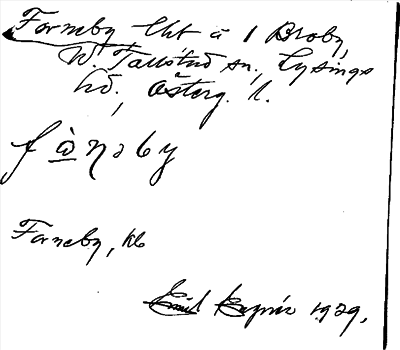 Formby, lht å 1 Broby,
V. Tollstad sn, Lysings
hd, Österg. l.
fὼnəby
Forneby, kb
Emil 1929.